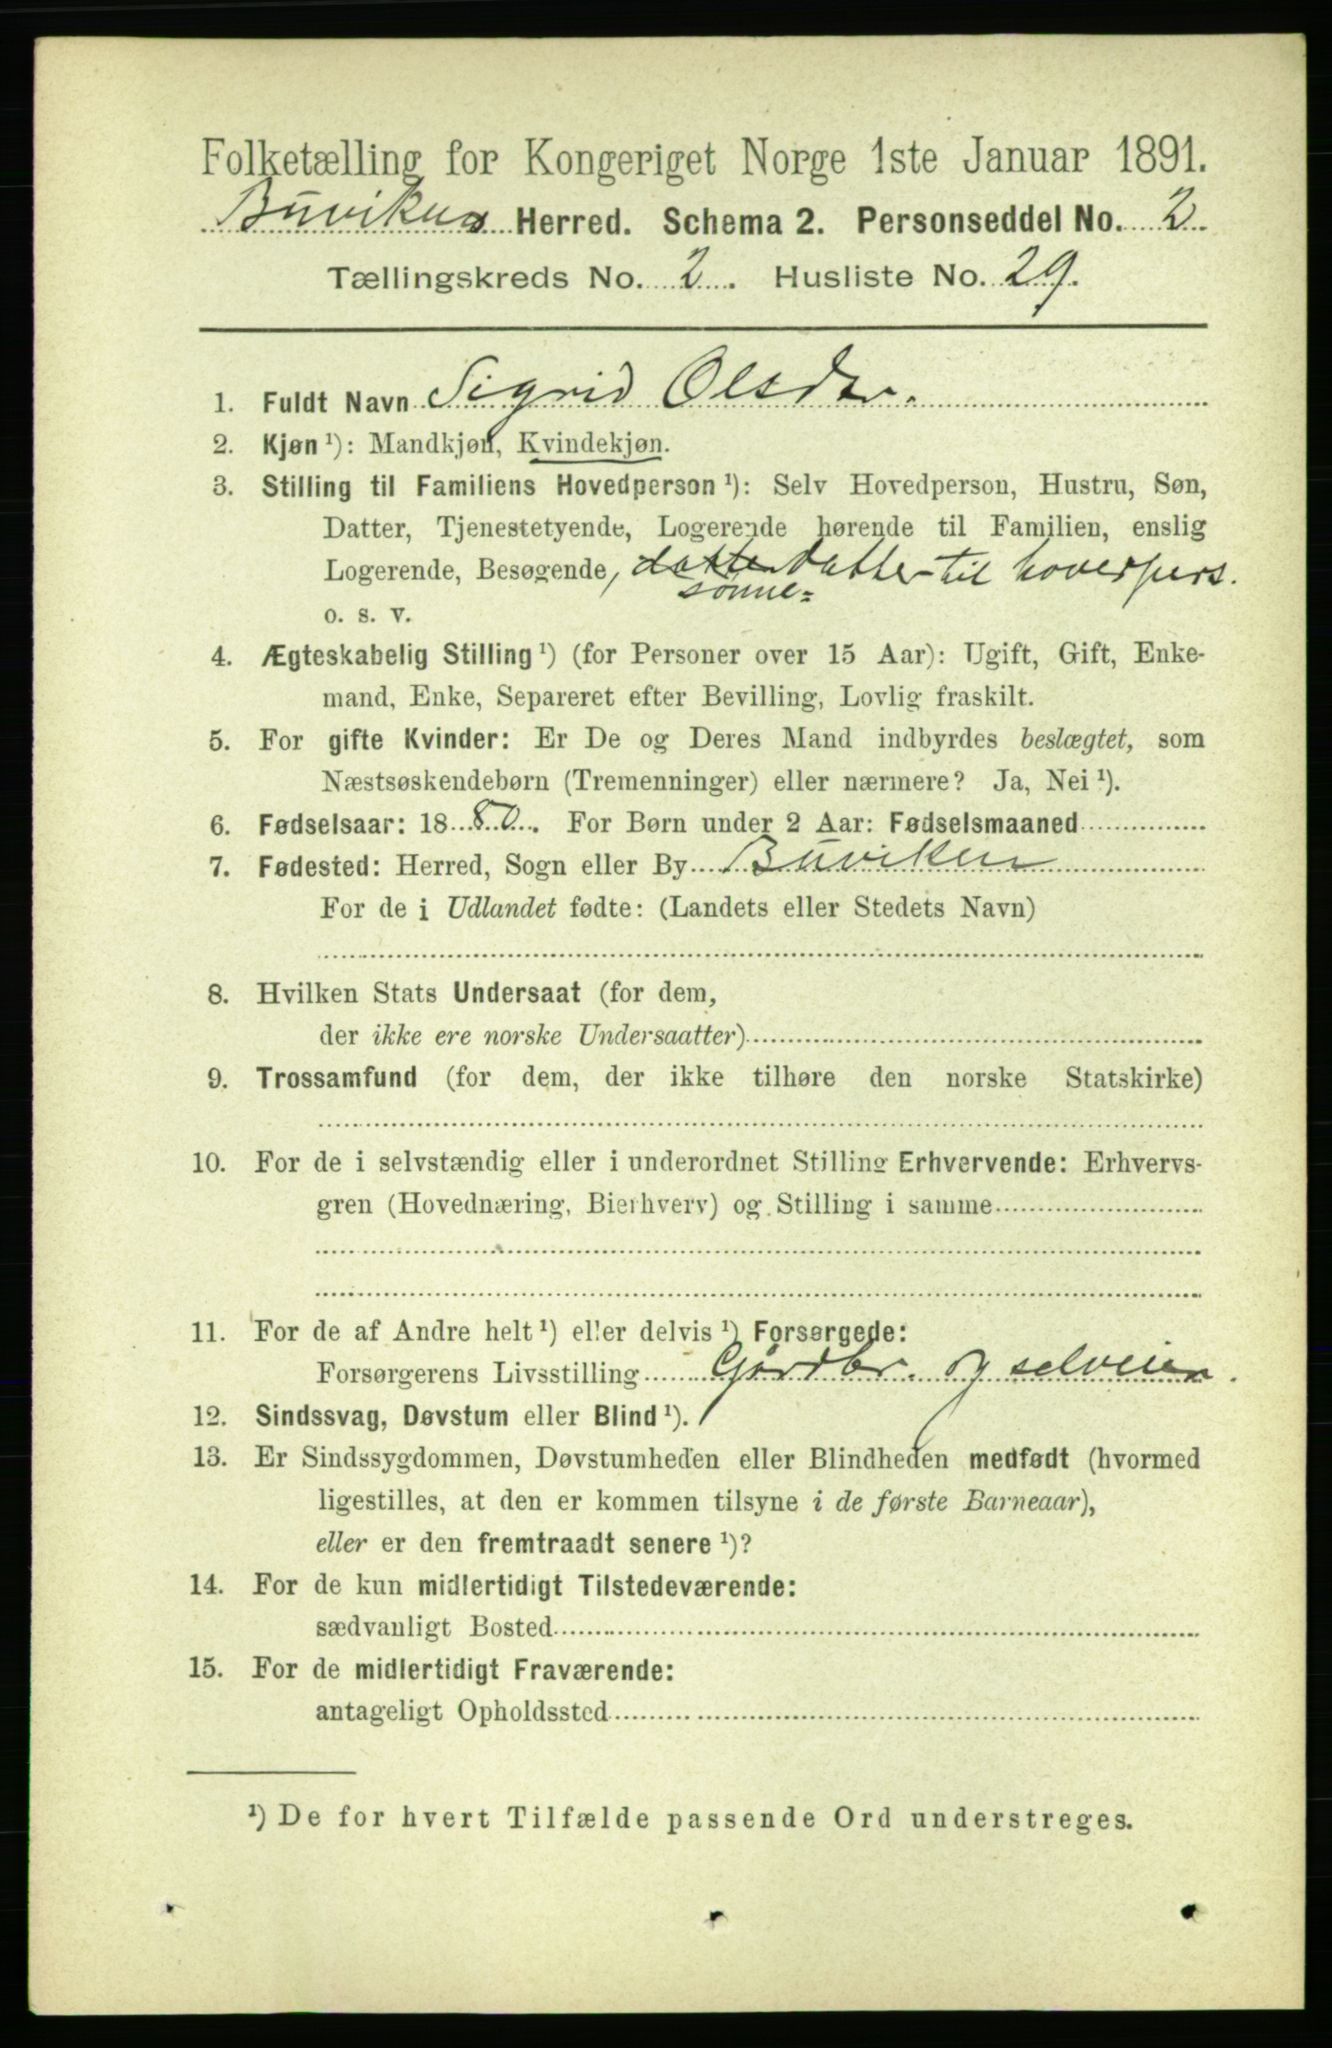 Folketælling for Kongeriget Norge 1ste Januar 1891.
Buvikens Herred. Schema 2. Personseddel No. 2
Tællingskreds No. 2. Husliste No. 29.
1. Fuldt Navn Sigrid Olsdtr.
2. Kjøn ¹): Mandkjøn, Kvindekjøn.
3. Stilling til Familiens Hovedperson ¹): Selv Hovedperson, Hustru, Søn,
Datter, Tjenestetyende, Logerende hørende til Familien, enslig
Logerende, Besøgende, datter datter til hoverpers.
sønne-
o. s. v.
4. Ægteskabelig Stilling ¹) (for Personer over 15 Aar): Ugift, Gift, Enke-
mand, Enke, Separeret efter Bevilling, Lovlig fraskilt.
5. For gifte Kvinder: Er De og Deres Mand indbyrdes beslægtet, som
Næstsøskendebørn (Tremenninger) eller nærmere? Ja, Nei ¹).
6. Fødselsaar: 1880. For Børn under 2 Aar: Fødselsmaaned
7. Fødested: Herred, Sogn eller By Buviken
For de i Udlandet fødte: (Landets eller Stedets Navn)
8. Hvilken Stats Undersaat (for dem,
der ikke ere norske Undersaatter)
9. Trossamfund (for dem, der ikke tilhøre den norske Statskirke)
10. For de i selvstændig eller i underordnet Stilling Erhvervende: Erhvervs-
gren (Hovednæring, Bierhverv) og Stilling i samme
11. For de af Andre helt ¹) eller delvis ¹) Forsørgede:
Forsørgerens Livsstilling Gårdbr. og selveier.
12. Sindssvag, Døvstum eller Blind ¹).
13. Er Sindssygdommen, Døvstumheden eller Blindheden medfødt (hvormed
ligestilles, at den er kommen tilsyne i de første Barneaar),
eller er den fremtraadt senere ¹)?
14. For de kun midlertidigt Tilstedeværende:
sædvanligt Bosted
15. For de midlertidigt Fraværende:
antageligt Opholdssted
¹) De for hvert Tilfælde passende Ord understreges.